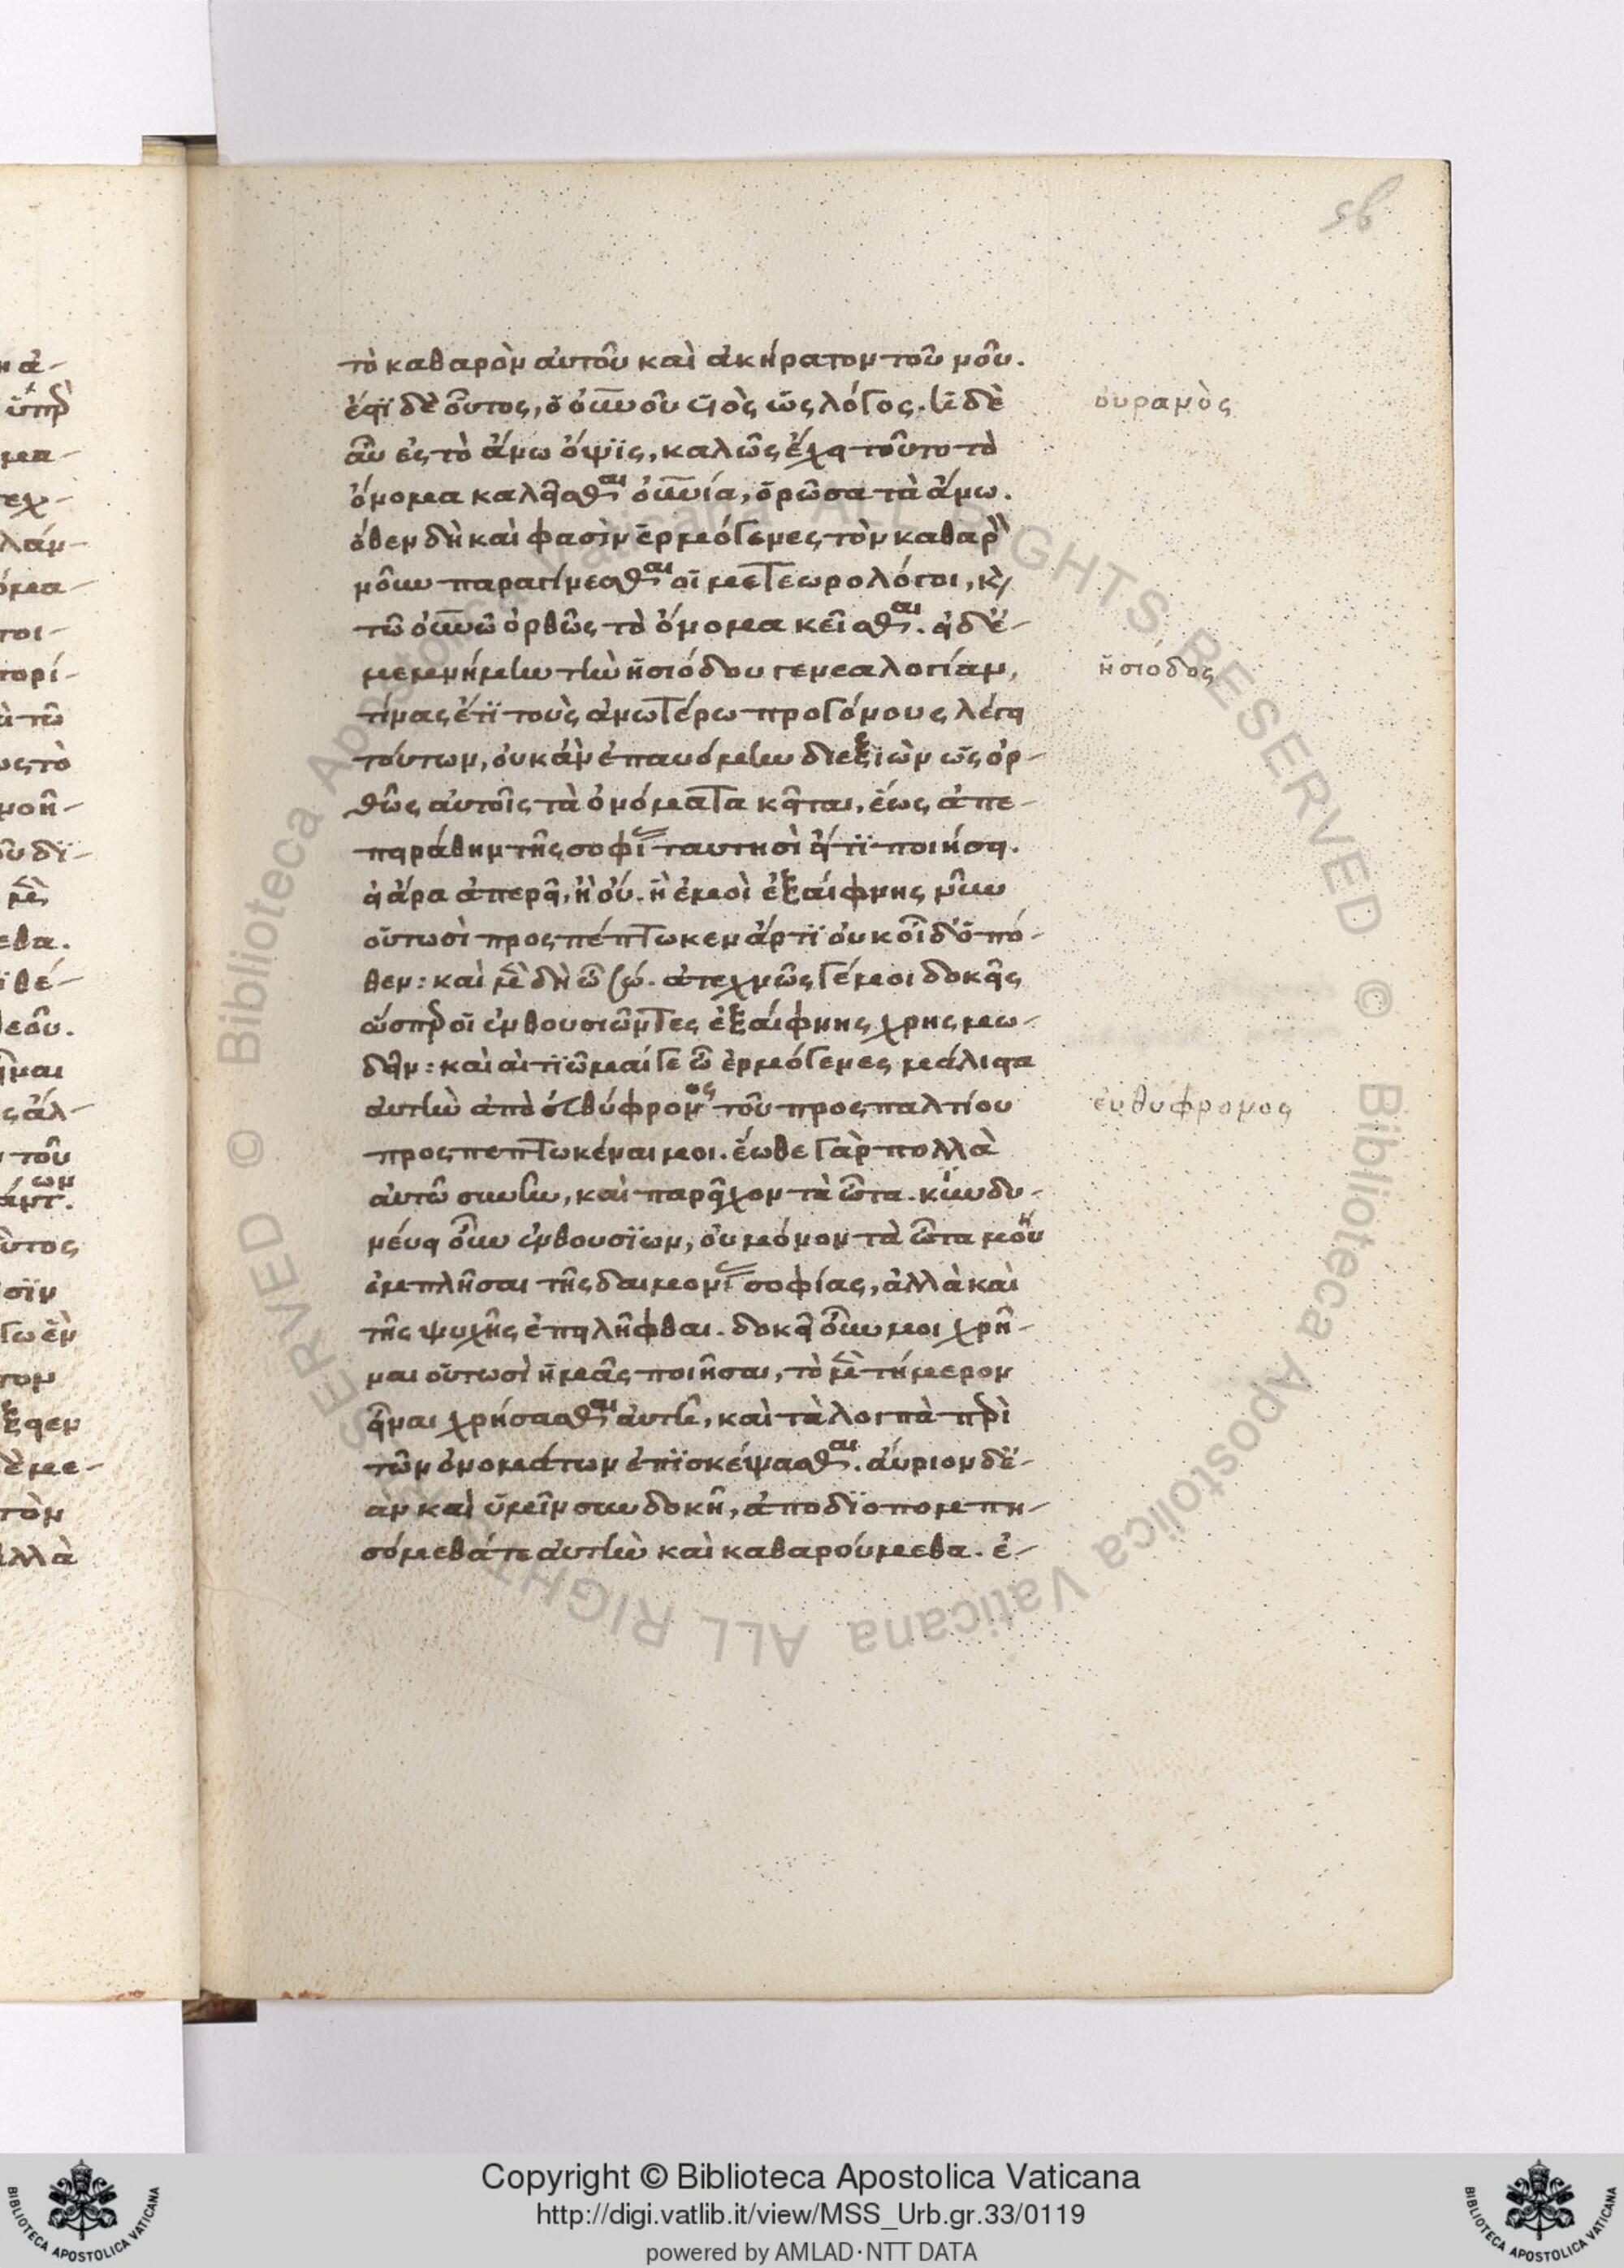 56
τὸ καθαρὸν αὐτοῦ καὶ ἀκήρατον τοῦ νοῦ.
ἔστι δὲ οὗτος, ὁ οὐνοῦ υἱὸς ὡς λόγος. ἡ δὲ
οὐρανὸς
αὖ ἐς τὸ ἄνω ὄψϊς, καλῶς ἔχει τοῦτο τὸ
ὄνομα καλεῖσθαι οὐνία, ὁρῶσα τὰ ἄνω.
ὅθεν δὴ καὶ φασὶν ἑρμόγενες τὸν καθαρὸν
νοῦν παραγίνεσθαι οἱ μετεωρολόγοι, καὶ
τῶ οὐνῶ ὀρθῶς τὸ ὄνομα κεῖσθαι. εἰ δ' ἐ-
μεμνήμην τὴν ἡσιόδου γενεαλογίαν,
ἡσιόδος
τίνας ἔτϊ τοὺς ἀνωτέρω προγόνους λέγει
τούτων, οὐκ ἂν ἐπαυόμην διεξιὼν ὡς ὀρ-
θῶς αὐτοῖς τὰ ὀνόματα κεῖται, ἕως ἀπε-
πειράθην τῆς σοφίας ταυτησὶ εἴ τϊ ποιήσει.
εἰ ἄρα ἀπερεῖ, ἢ οὔ. ἣ ἐμοὶ ἐξαίφνης νῦν
οὑτωσὶ προσπέπτωκεν ἄρτϊ οὐκ οἶδ' ὁπό-
θεν: καὶ μὲν δὴ ὦ σώ. ἀτεχνῶς γέ μοι δοκεῖς
ὥσπερ οἱ ἐνθουσιῶντες ἐξαίφνης χρησμω-
δεῖν: καὶ αἰτϊῶμαί γε ὦ ἑρμόγενες μάλιστα
αὐτὴν ἀπὸ εὐθύφρονος τοῦ προσπαλτίου
εὐθυφρονος
προσπεπτωκέναι μοι. ἕωθε γὰρ πολλὰ
αὐτῶ συνῆν, καὶ παρεῖχον τὰ ὦτα. κινδυ-
νεύει οὖν ἐνθουσϊων, οὐ μόνον τὰ ὦτα μου
ἐμπλῆσαι τῆς δαιμονίας σοφίας, ἀλλὰ καὶ
τῆς ψυχῆς ἐπειλῆφθαι. δοκεῖ οὖν μοι χρῆ-
ναι οὑτωσὶ ἡμᾶς ποιῆσαι, τὸ μὲν τήμερον
εἶναι χρήσασθαι αὐτῆ, καὶ τὰ λοιπὰ περὶ
τῶν ὀνομάτων ἐπϊσκέψασθαι. αὔριον δὲ
ἂν καὶ ὑμῖν συνδοκῆ, ἀποδϊοπομπη-
σόμεθά τε αὐτὴν καὶ καθαρούμεθα. ἐ-
Copyright © Biblioteca Apostolica Vaticana
http://digi.vatlib.it/view/MSS_Urb.gr.33/0119
powered by AMLAD·NTT DATA